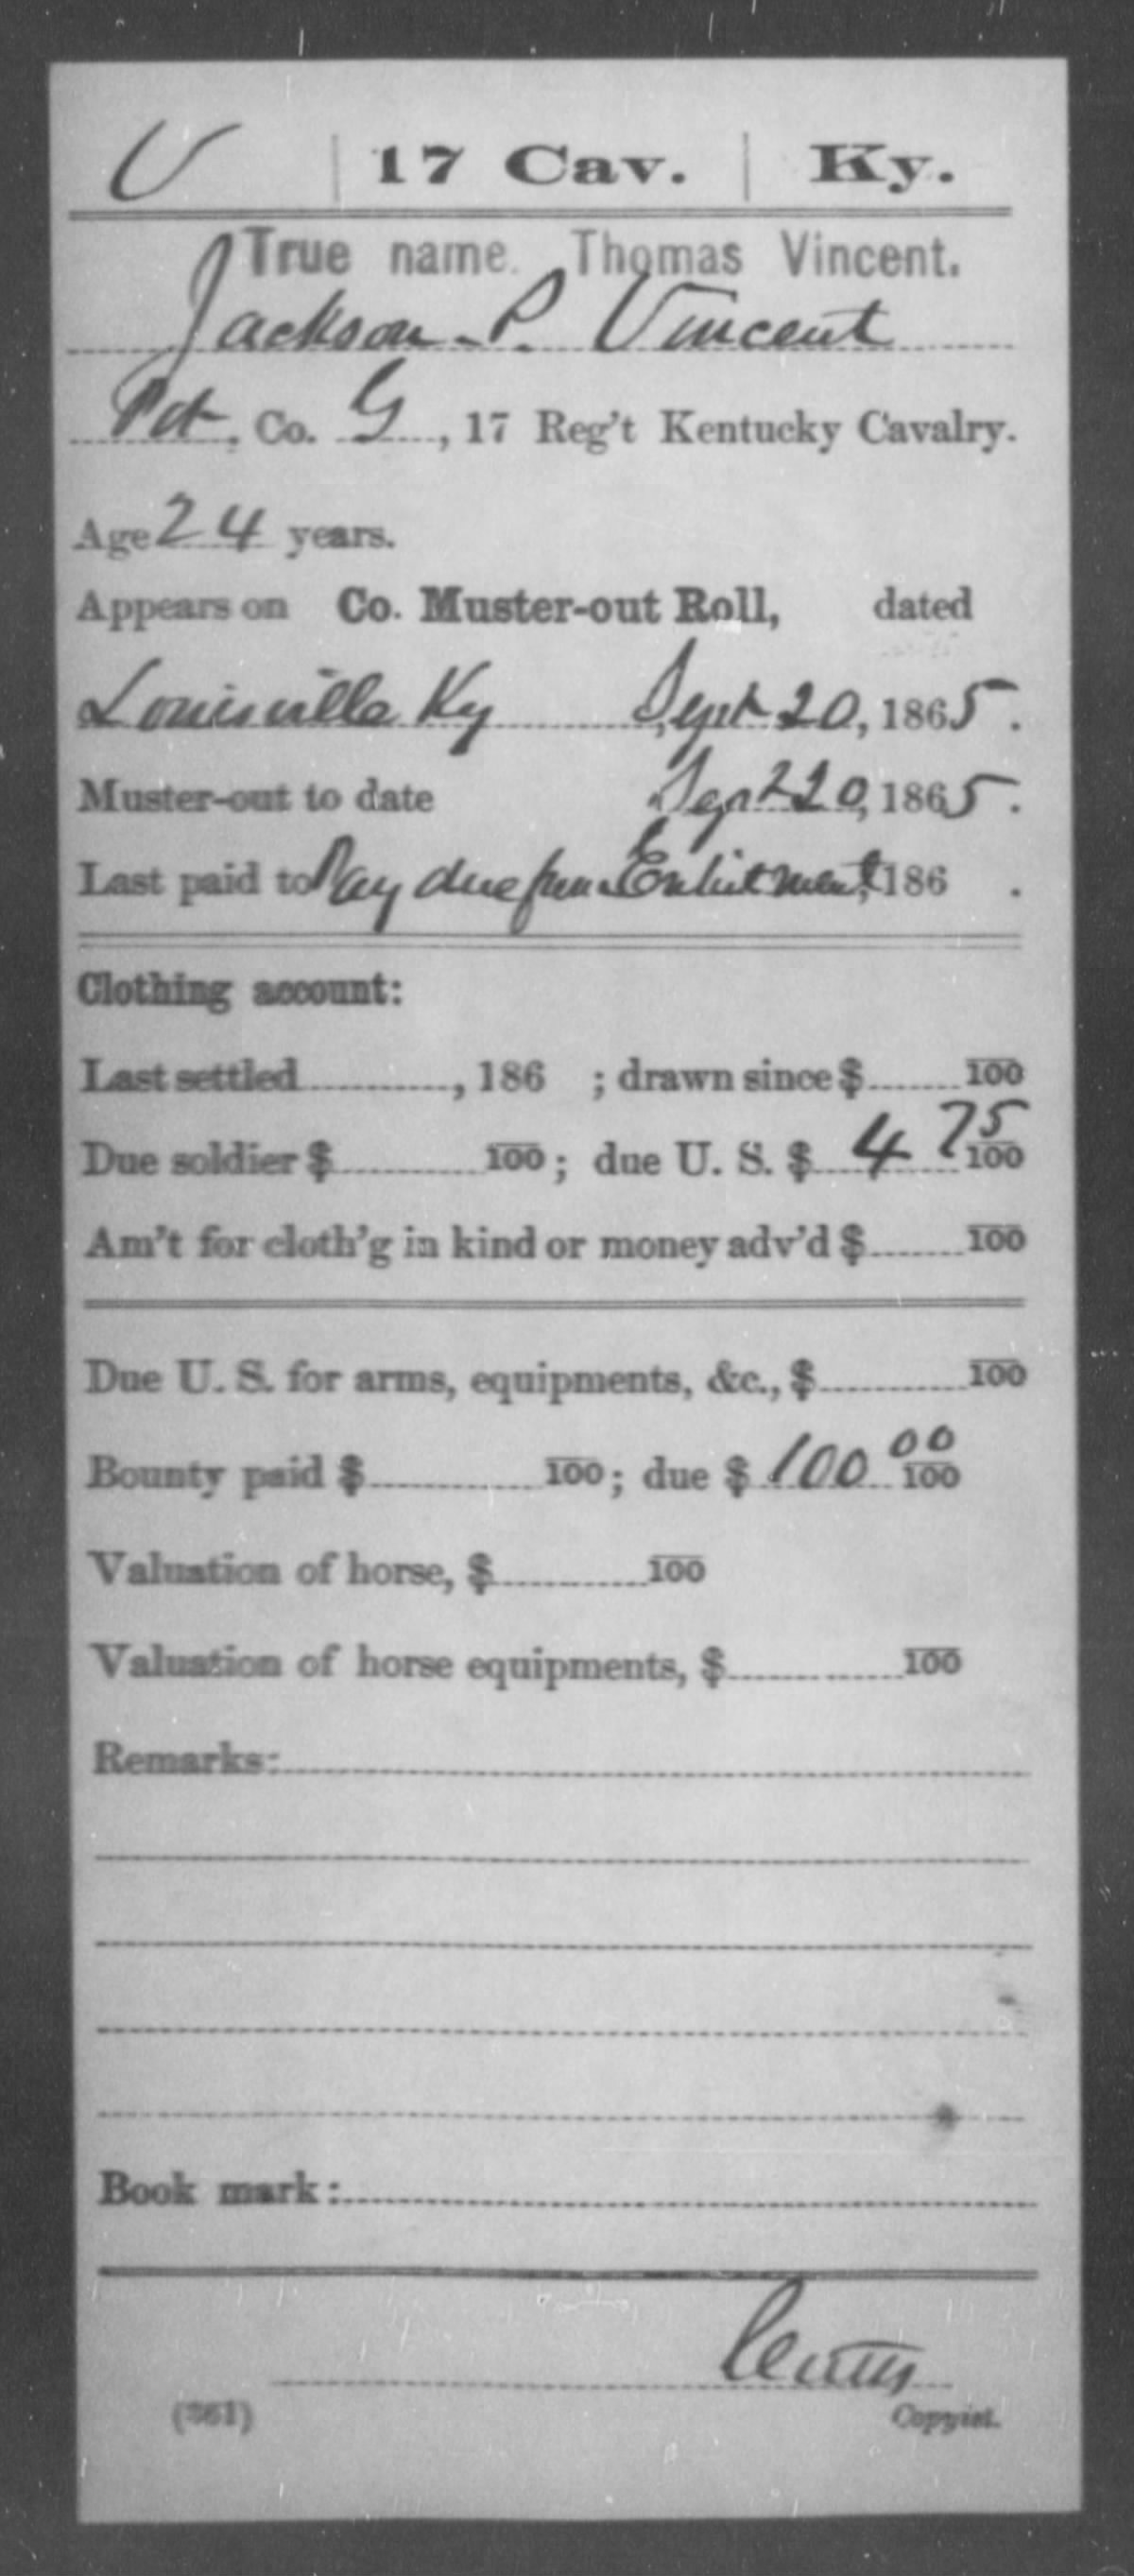 V | 17 Cav. | Ky.
True name. Thomas Vincent.
Jackson P. Vincent
Pvt, Co. G, 17 Reg't Kentucky Cavalry.
Age 24 years.
Appears on Co. Muster-out Roll, dated
Louisville Ky Sept 20, 1865.
Muster-out to date Sept 20, 1865.
Last paid to Pay due from Enlistment, 186 .
Clothing account:
Last settled , 186 ; drawn since $ 100
Due soldier $ 100; due U. S. $ 4 75/100
Am't for cloth'g in kind or money adv'd $ 100
Due U. S. for arms, equipments, &c., $ 100
Bounty paid $ 100; due $ 100 00/100
Valuation of horse, $ 100
Valuation of horse equipments, $ 100
Remarks:
Book mark:
(361) Copyist.